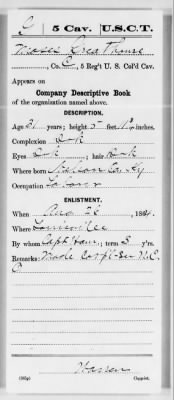 C | 5 Cav. | U.S.C.T.
Moses
Co. C, 5 Reg't U. S. Col'd Cav.
Appears on
Company Descriptive Book
of the organization named above.
DESCRIPTION.
Age 21 years; height 5 feet inches.
Complexion Blk
Eyes Blk; hair Blk
Where born Co. Ky
Occupation Laborer
ENLISTMENT.
When Aug 26, 1864.
Where Louisville
By whom Capt; term 3 y'rs.
Remarks: Made Corpl
Copyist.